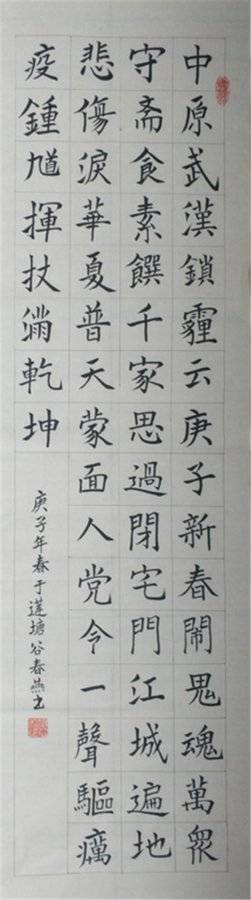 中原武漢鎖霾云庚子新春鬧鬼魂萬眾
守斋食素饌千家思過閉宅門江城遍地
悲傷淚華夏普天蒙面人党今一聲驅癘
疫鍾馗揮杖滿乾坤
庚子年春于蓮塘谷春燕书